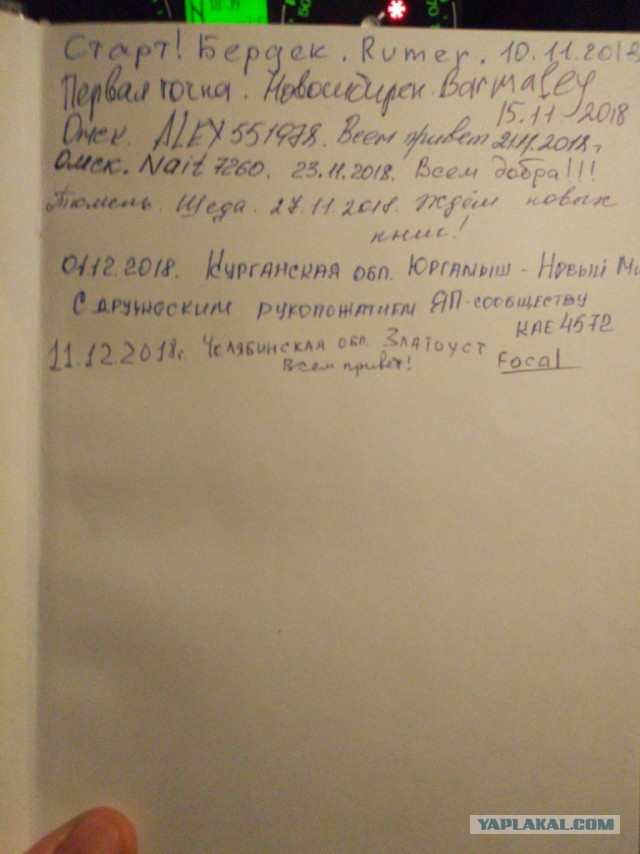 18:39
Старт! Бердск. Rumer. 10.11.2018
Первая точка. Новосибирск. Barmaley
15.11.2018
Омск. ALEX551978. Всем привет 21.11.2018г
Омск. Nait 7260. 23.11.2018. Всем добра!!!
Тюмень. Щеда. 27.11.2018. Ждём новых
книг!
01.12.2018. Курганская обл. Юргамыш - Новый Ми
С дружеским рукопожатием ЯП-сообществу
КАЕ4572
11.12.2018г. Челябинская обл. Златоуст
Всем привет! Focal
YAPLAKAL.COM